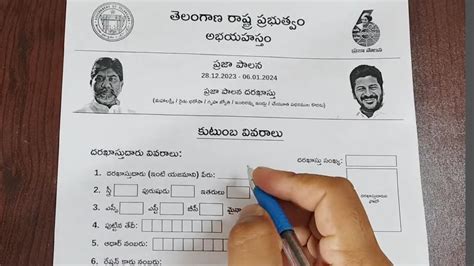 తెలంగాణ రాష్ట్ర ప్రభుత్వం
అభయహస్తం
ప్రజా పాలన
ప్రజా పాలన
28.12.2023 - 06.01.2024
ప్రజా పాలన దరఖాస్తు
(మహాలక్ష్మి / రైతు భరోసా / గృహ జ్యోతి / ఇందిరమ్మ ఇండ్లు / చేయూత పథకముల కొరకు)
కుటుంబ వివరాలు
దరఖాస్తుదారు వివరాలు:
దరఖాస్తు సంఖ్య:
1. దరఖాస్తుదారు (ఇంటి యజమాని) పేరు:
2. స్త్రీ పురుషుడు ఇతరులు
3. ఎస్సీ ఎస్టీ బీసీ మైనా
4. పుట్టిన తేదీ:
5. ఆధార్ నంబరు:
6. రేషన్ కార్డు నంబరు: